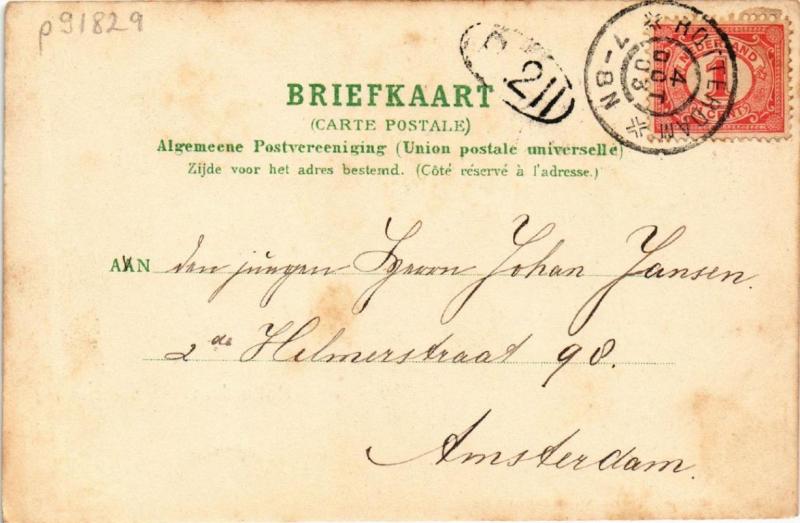 p91829
211
ROTTERDAM
4 OCT 03
7-8N
NEDERLAND
1
CENT
BRIEFKAART
(CARTE POSTALE)
Algemeene Postvereeniging (Union postale universelle)
Zijde voor het adres bestemd. (Côté réservé à l'adresse.)
AAN den jungen Herrn Johan Jansen.
2de Helmerstraat 98.
Amsterdam.